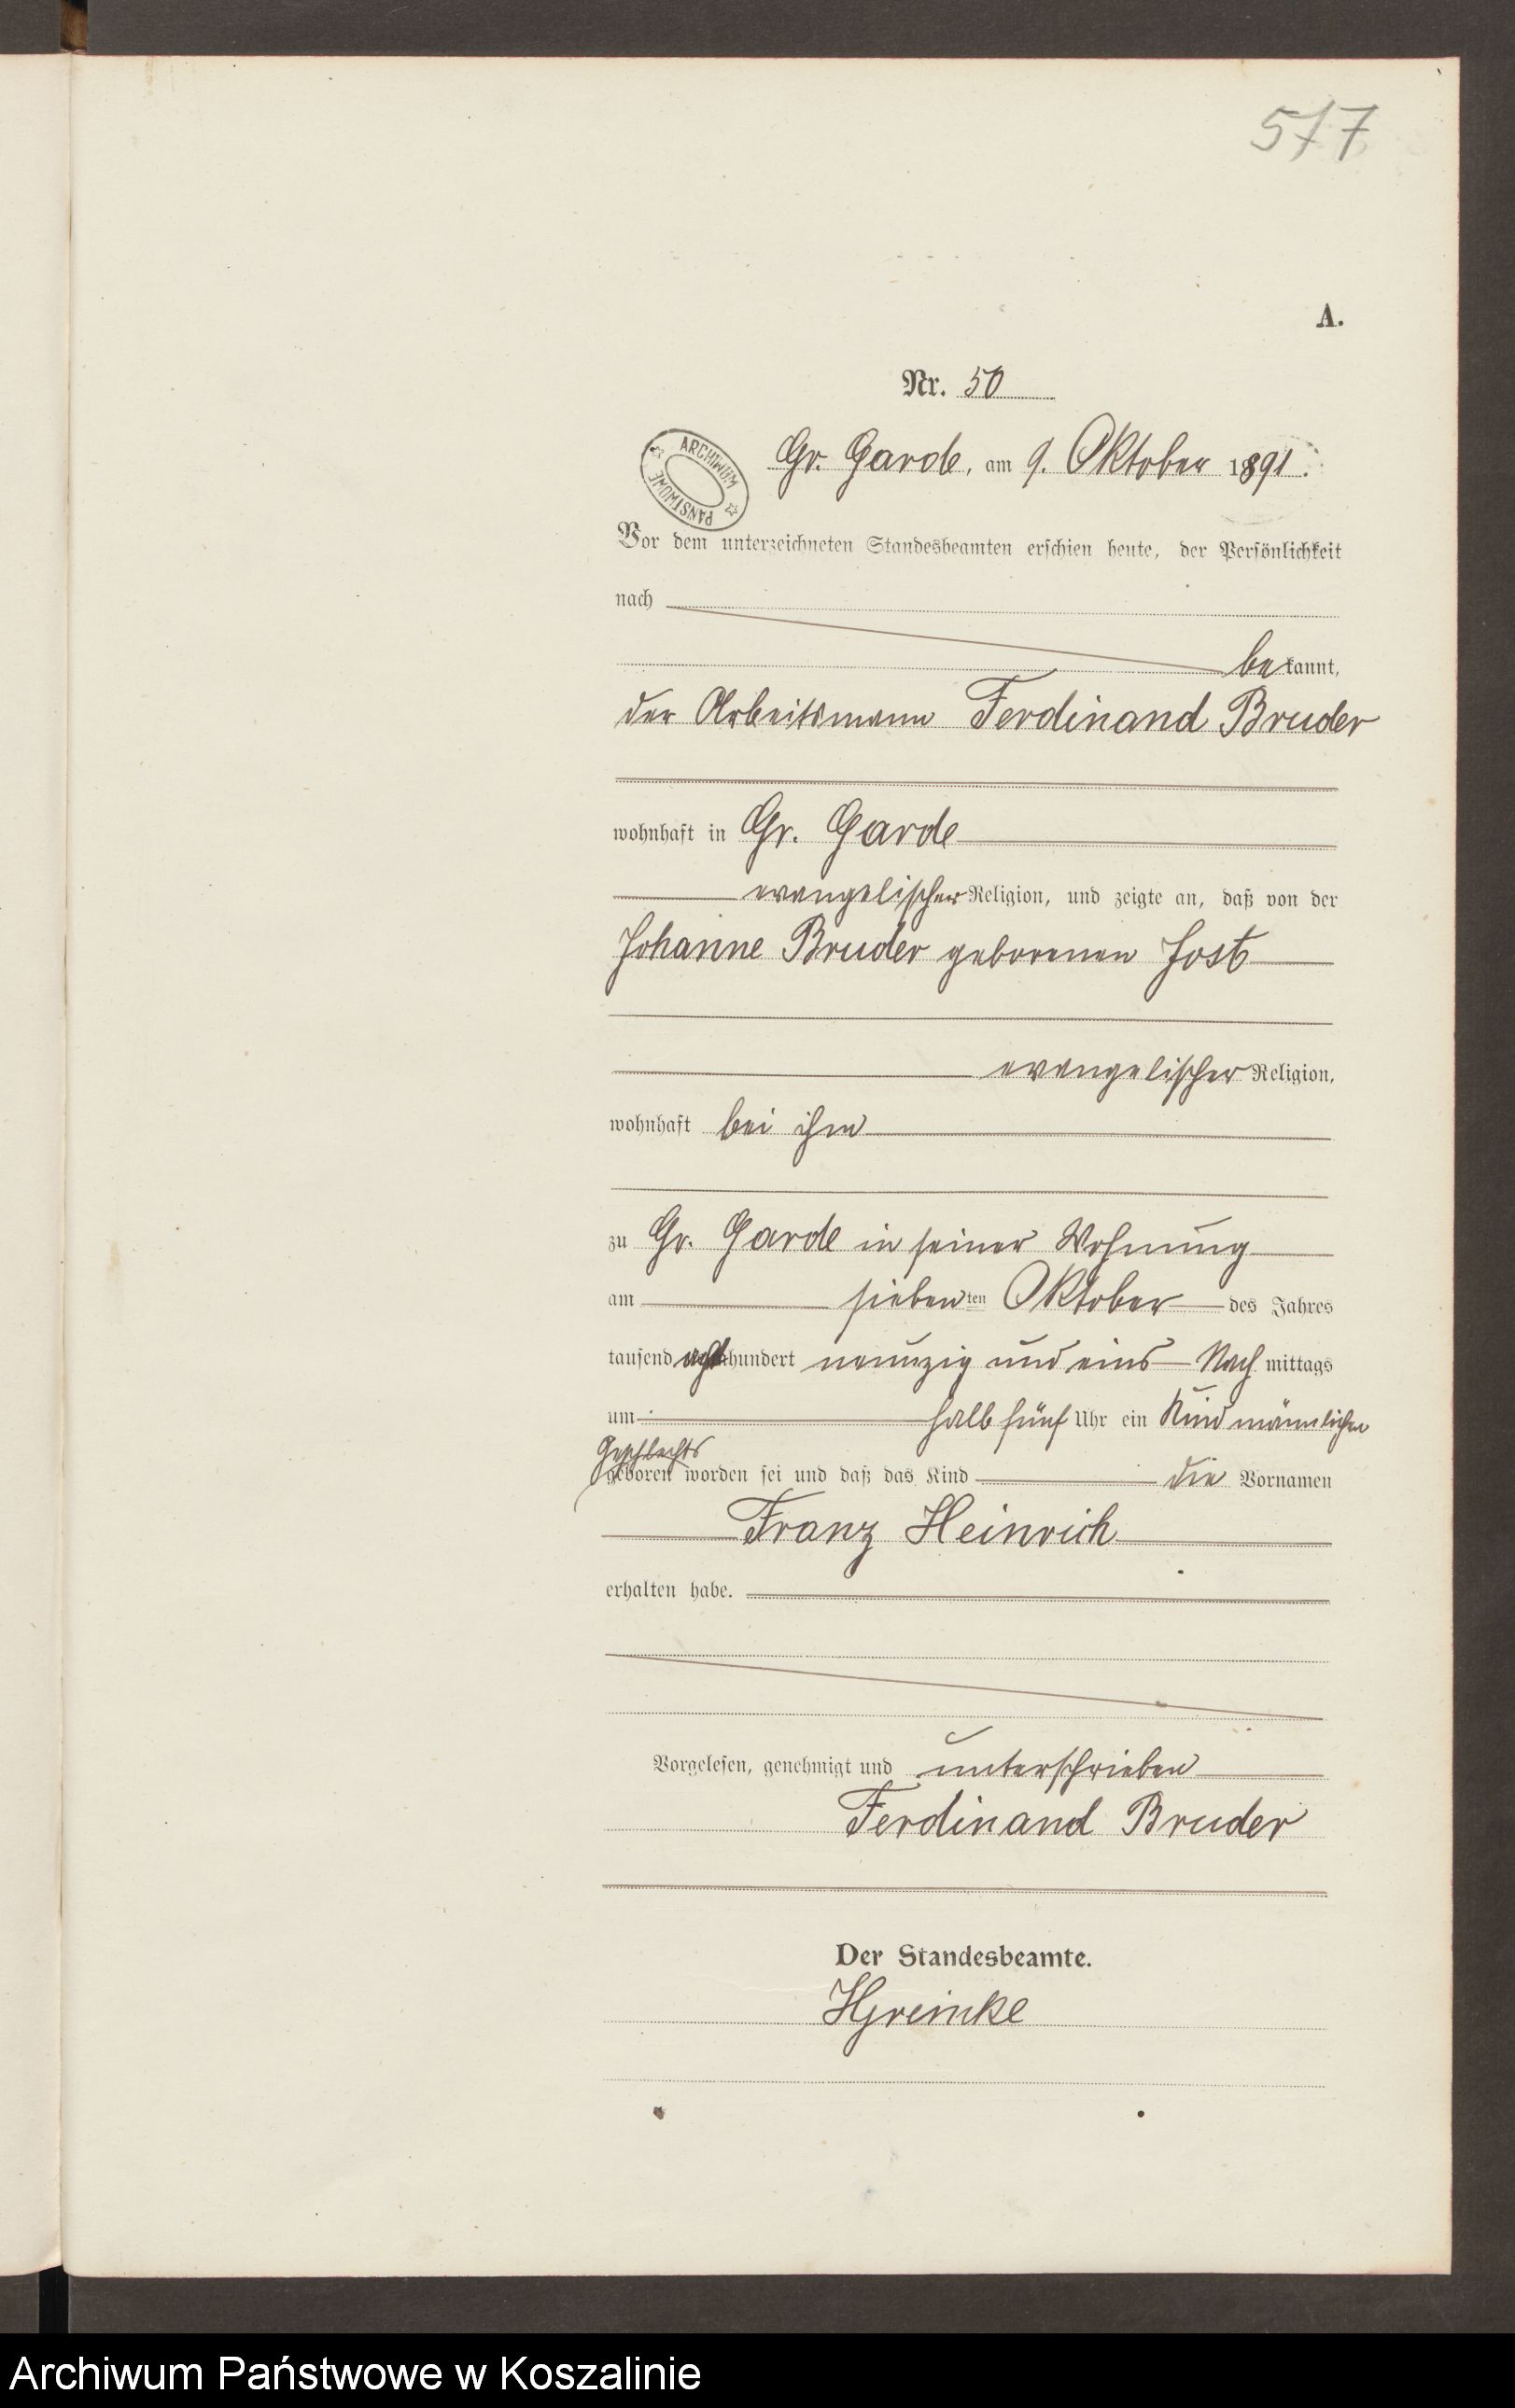 577
A.
Nr. 50
Gr. Garde, am 9. Oktober 1891.
ARCHIWUM PAŃSTWOWE
Vor dem unterzeichneten Standesbeamten erschien heute, der Persönlichkeit
nach
bekannt,
der Arbeitsmann Ferdinand Bruder
wohnhaft in Gr. Garde
evangelischer Religion, und zeigte an, daß von der
Johanne Bruder geborenen Jost
evangelischer Religion,
wohnhaft bei ihm
zu Gr. Garde in seiner Wohnung
am siebenten Oktober des Jahres
tausend achthundert neunzig und eins Nachmittags
um halb fünf Uhr ein Kind männlichen
Geschlechts
geboren worden sei und daß das Kind die Vornamen
Franz Heinrich
erhalten habe.
Vorgelesen, genehmigt und unterschrieben
Ferdinand Bruder
Der Standesbeamte.
Archiwum Państwowe w Koszalinie